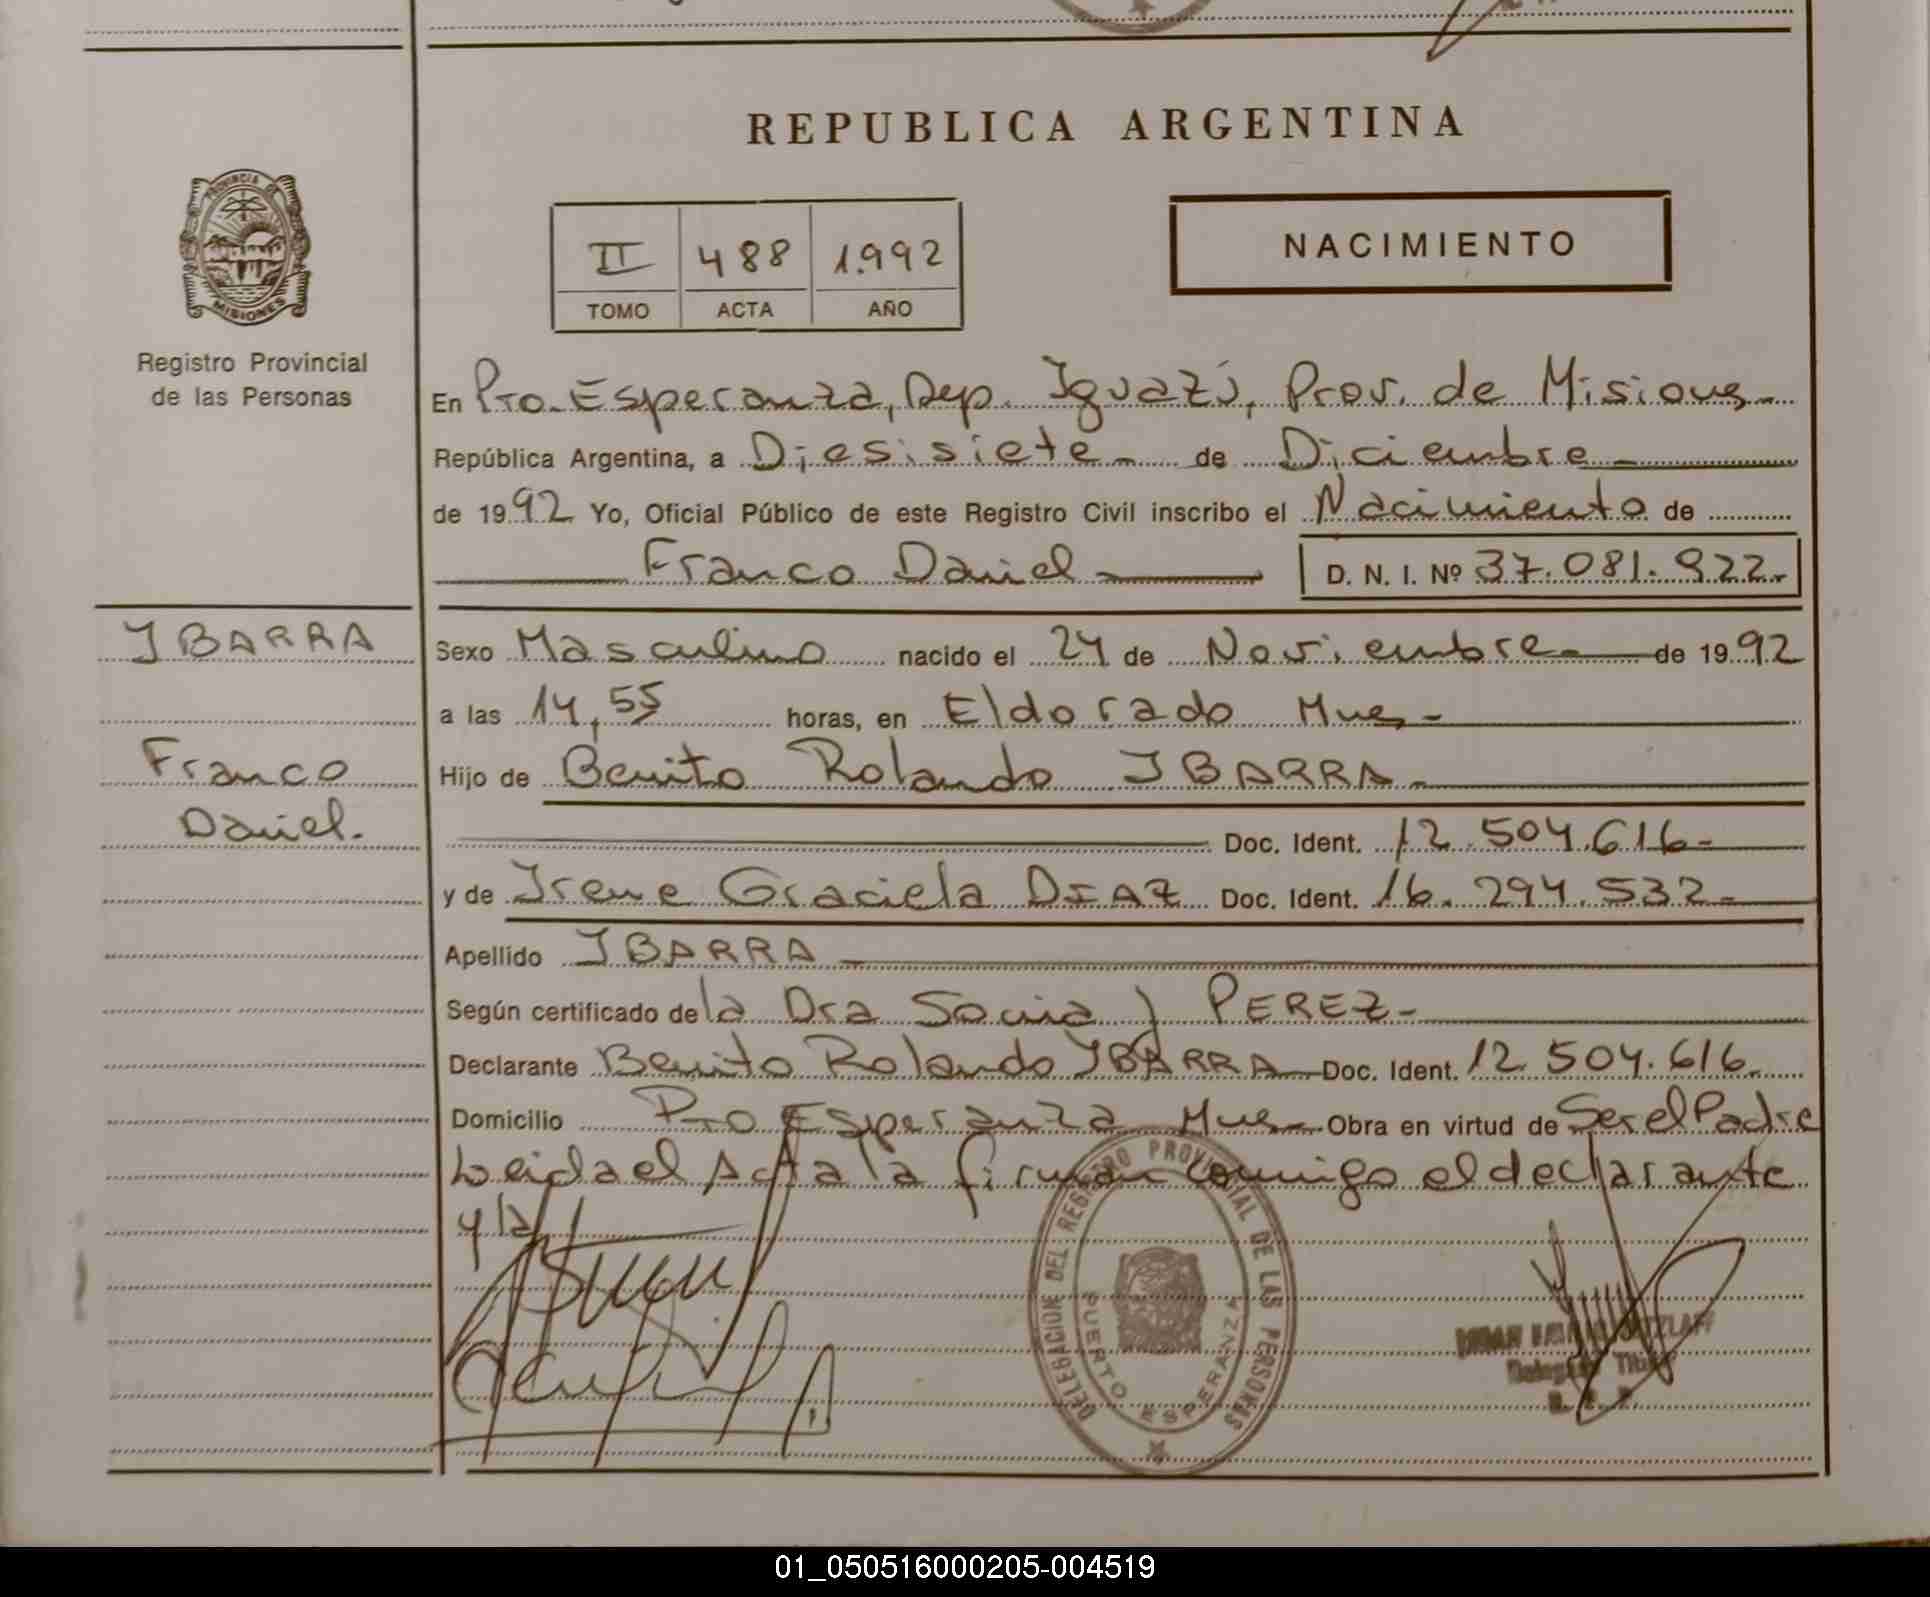 REPUBLICA ARGENTINA
PROVINCIA DE
MISIONES
Registro Provincial
de las Personas
II 488 1.992
TOMO ACTA AÑO
NACIMIENTO
En Pto. Esperanza, Dep. Iguazú, Prov. de Misiones
República Argentina, a Diesisiete de Diciembre
de 1992 Yo, Oficial Público de este Registro Civil inscribo el Nacimiento de
Franco Daniel D. N. I. Nº 37.081.922
IBARRA
Franco
Daniel.
Sexo Masculino nacido el 24 de Noviembre de 1992
a las 14,55 horas, en Eldorado Mnes
Hijo de Benito Rolando IBARRA
Doc. Ident. 12.504.616
y de Irene Graciela DIAZ Doc. Ident. 16.294.532
Apellido IBARRA
Según certificado de la Dra Sonia J PEREZ
Declarante Benito Rolando IBARRA Doc. Ident. 12.504.616
Domicilio Pto Esperanza Mnes Obra en virtud de Ser el Padre
Leida el Acta la firman comigo el declarante
y la
DELEGACION DEL REGISTRO PROVINCIAL DE LAS PERSONAS
PUERTO ESPERANZA
Titular
01_050516000205-004519